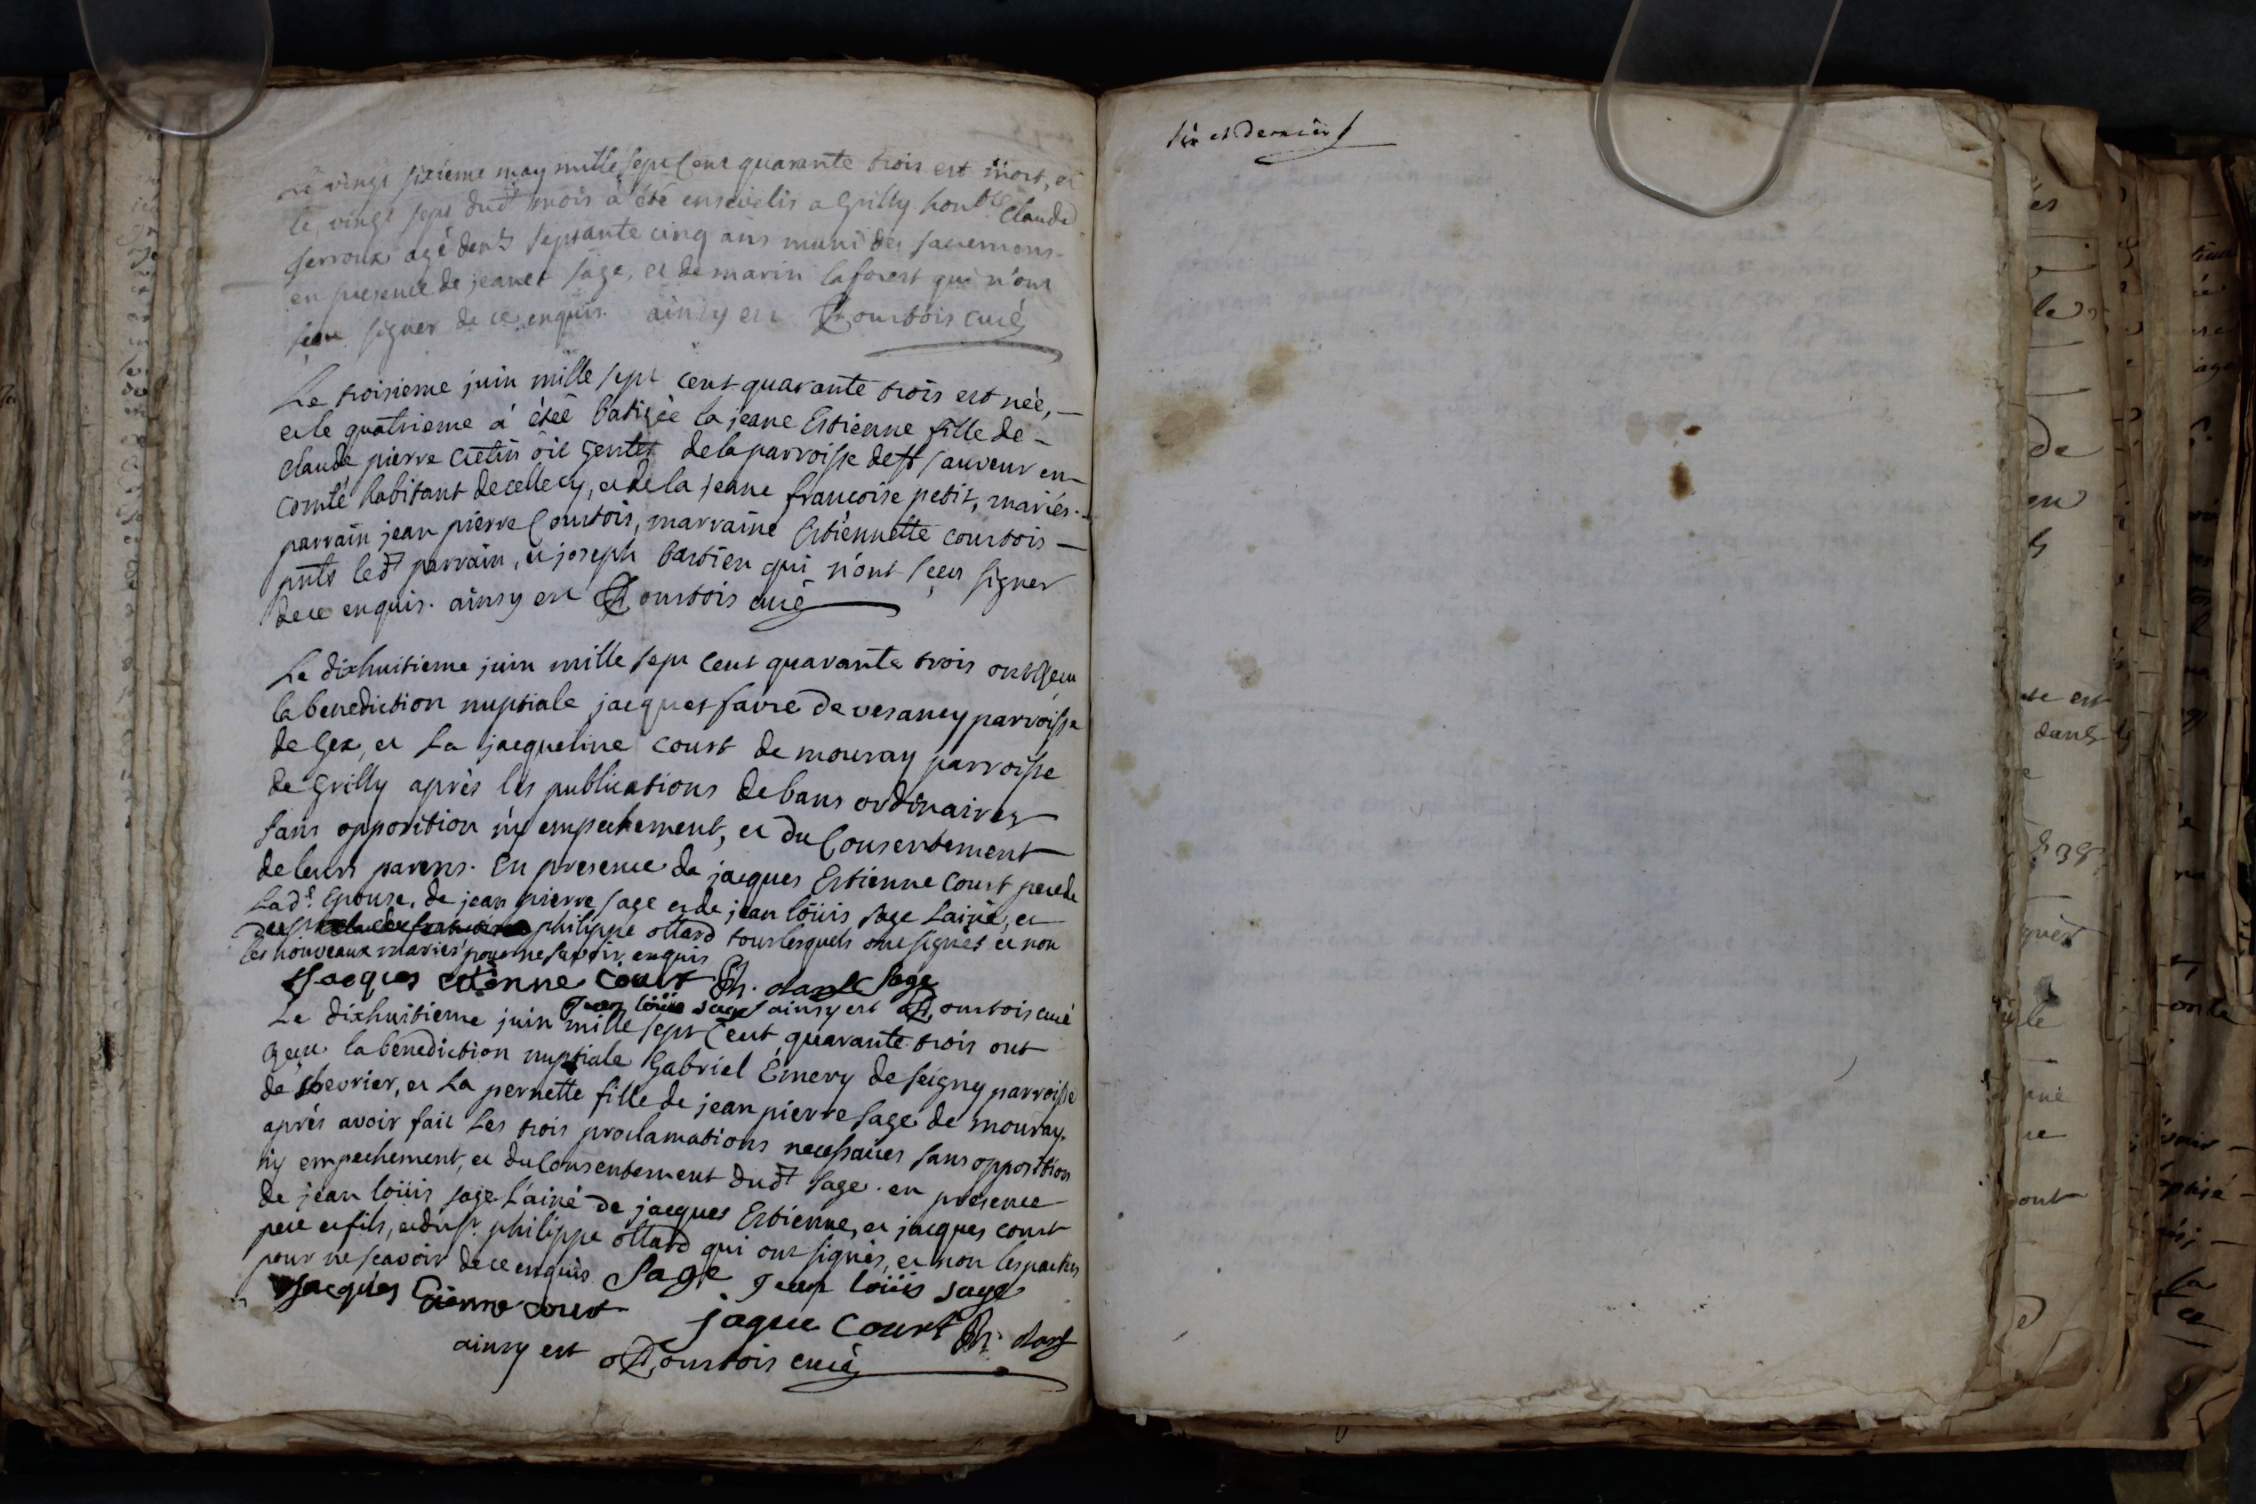 Le vingt sixieme may mille sept cent quarante trois est mort, et
le vingt sept dud.t mois à été ensevelis a Grilly hon.ble Claude
perroux agé den.n septante cinq ans muni des sacremens
en presence de jeanet sage, et de marin laforest qui n'ont
sceu signer de ce enquis. ainsy est Courtois curé
Le troisieme juin mille sept cent quarante trois est née,
et le quatrieme à étée batizée la jeane Estienne fille de
claude pierre cretin dit gentet de la parroisse de st sauveur en
comté habitant de celle cy, et de la jeane francoise petit, mariés.
parrain jean pierre Courtois, marraine Estiennette courtois
pnts led.t parrain, et joseph bastien qui n'ont sceu signer
de ce enquis. ainsy est Courtois curé
Le dixhuitieme juin mille sept cent quarante trois ont reçeu
la benediction nuptiale jacques favre de vesancy parroisse
de Gex, et La jacqueline court de mouray parroisse
de Grilly après les publications de bans ordinaires
sans opposition ny empechement, et du Consentement
de leurs parens. En presence de jacques Estienne Court pere de
Lad.e Epouse, de jean pierre sage et de jean loüis sage Lainé, et
philippe ottard tous lesquels ont signés et non
les nouveaux mariés pour ne savoir enquis
Jacques etienne Court Ph. otard Sage
Jean loüis sage ainsy est Courtois curé
Le dixhuitieme juin mille sept Cent quarante trois ont
reçeu la benediction nuptiale Gabriel Emery de seigny parroisse
de chevrier, et La pernette fille de jean pierre sage de mouray.
aprés avoir fait Les trois proclamations necessaires sans opposition
ny empechement, et du Consentement dud.t sage. en presence
de jean loüis sage L'ainé de jacques Estienne, et jacques court
pere et fils, et du s.r philippe ottard qui ont signés, et non les parties
pour ne scavoir de ce enquis Sage Jean loüis sage
Jacques Etienne court jaque Court Ph. otard
ainsy est Courtois curé
six et dernier